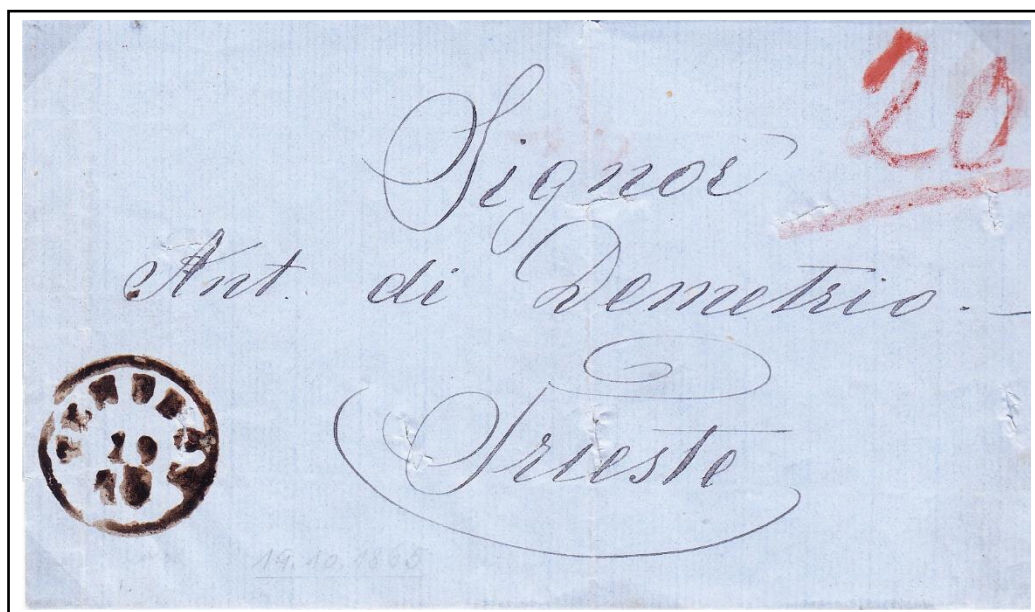 20
Signor
Ant. di Demetrio. –
Trieste
19
10